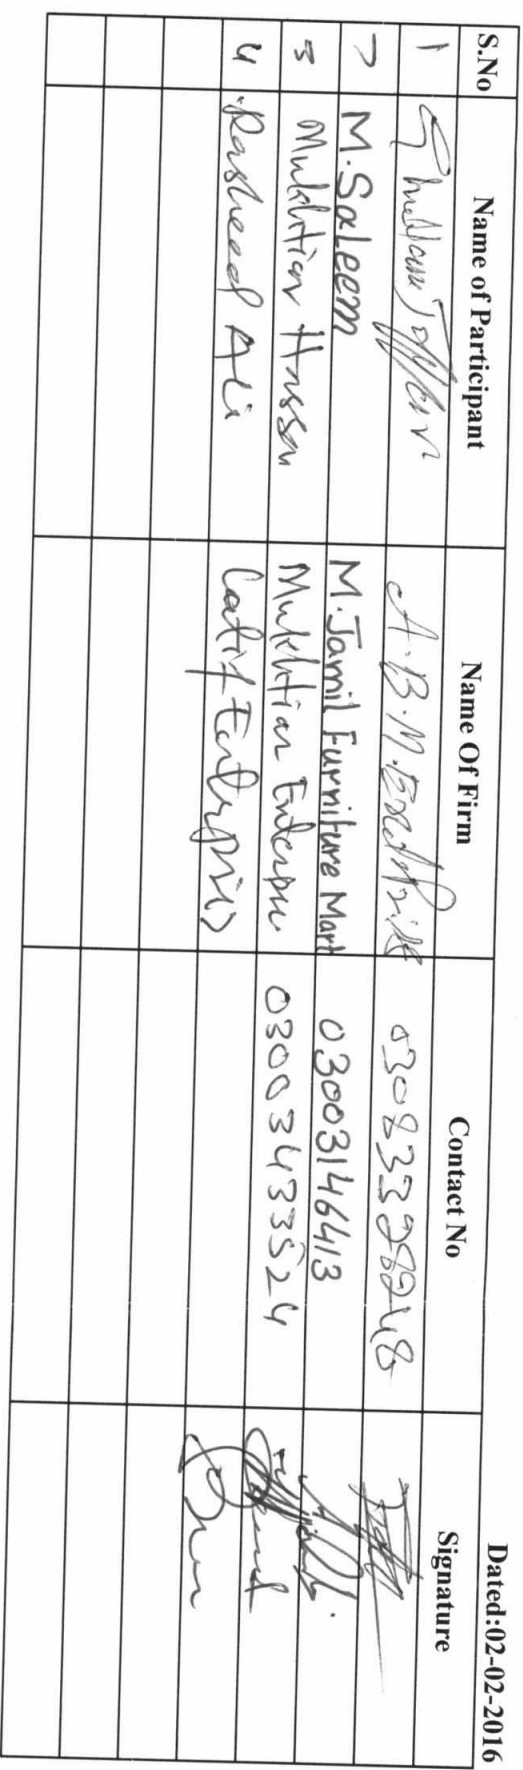 Dated:02-02-2016
S.No Name of Participant Name Of Firm Contact No Signature
1 Ghullam Jaffar A.B.M. 03083328248
2 M.Saleem M.Jamil Furniture Mart 03003146413
3 Mukhtiar Hassan Mukhtiar 03003433524
4 Rasheed Ali Latif Enterprises